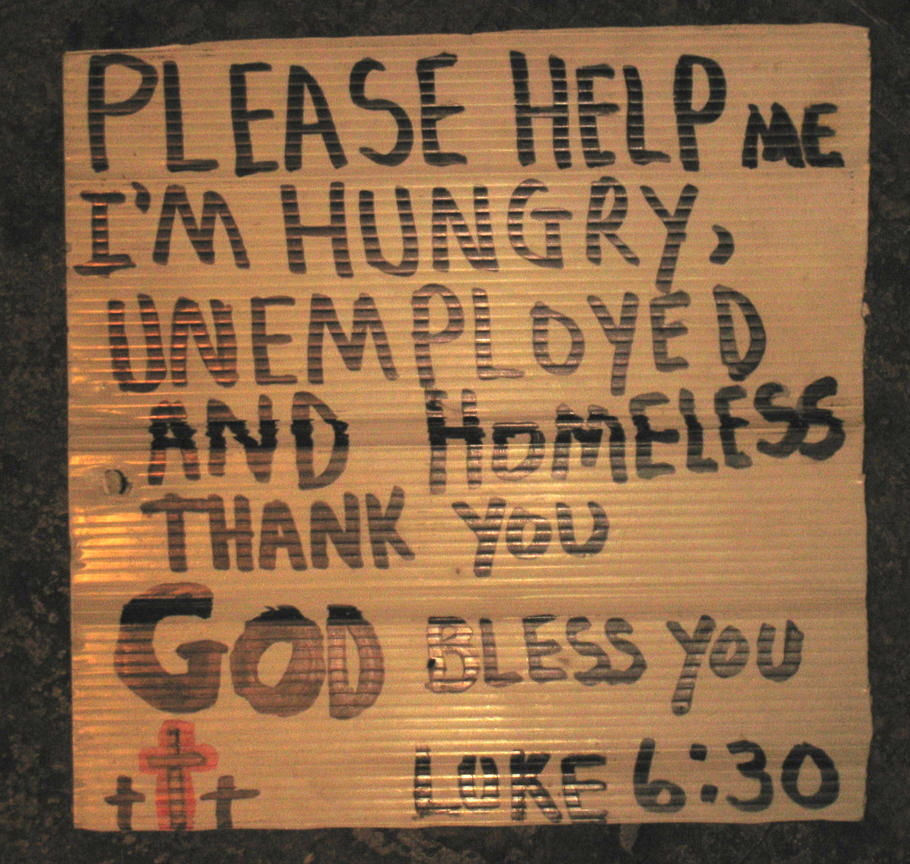 PLEASE HELP ME
I'M HUNGRY,
UNEMPLOYED
AND HOMELESS
THANK YOU
GOD BLESS YOU
LUKE 6:30